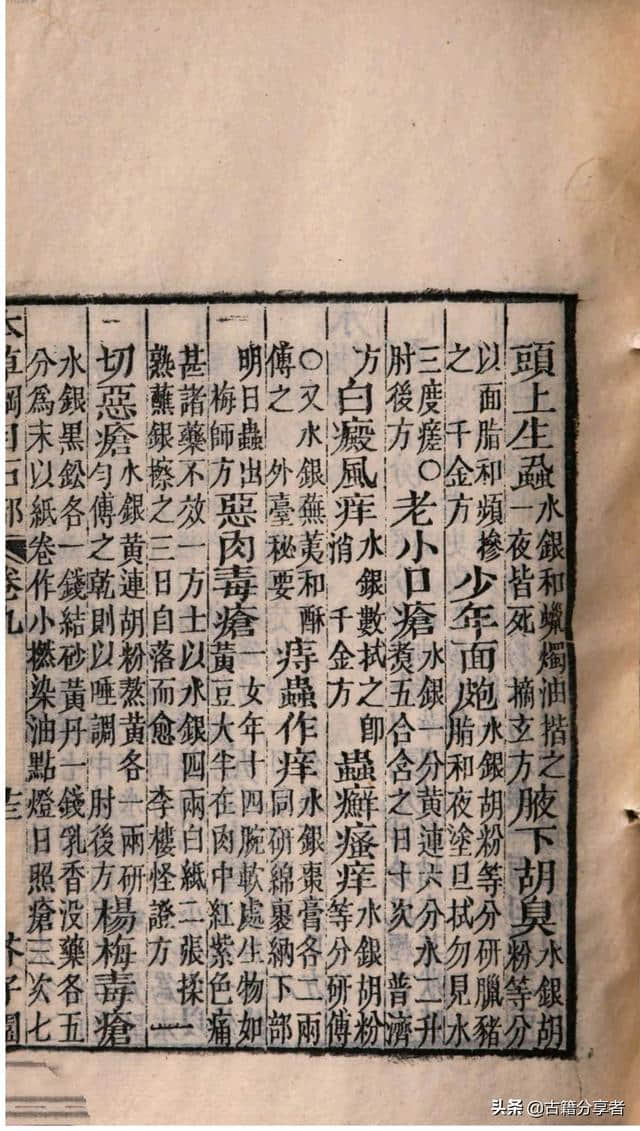 頭上生蝨水銀和蠟燭油揩之一夜皆死 摘玄方腋下胡臭水銀胡粉等分
以面脂和頻摻之 千金方少年面皰水銀胡粉等分研臘豬脂和夜塗旦拭勿見水
三度瘥○肘後方老小口瘡水銀一分黃連六分水二升煑五合含之日十次 普濟
方白癜風痒水銀數拭之即消 千金方蟲癬瘙痒水銀胡粉等分研傅
○又水銀蕪荑和酥傅之 外臺秘要痔蟲作痒水銀棗膏各二兩同研綿裹納下部
明日蟲出梅師方惡肉毒瘡一女年十四腕軟處生物如黃豆大半在肉中紅紫色痛
甚諸藥不效一方士以水銀四兩白紙二張揉熟蘸銀擦之三日自落而愈 李樓怪證方 一
切惡瘡水銀黃連胡粉熬黃各一兩研勻傅之乾則以唾調 肘後方楊梅毒瘡
水銀黑鈆各一錢結砂黃丹一錢乳香没藥各五分爲末以紙卷作小撚染油點燈日照瘡三次七
本草綱目石部 卷九 芥子園
头条@古籍分享者